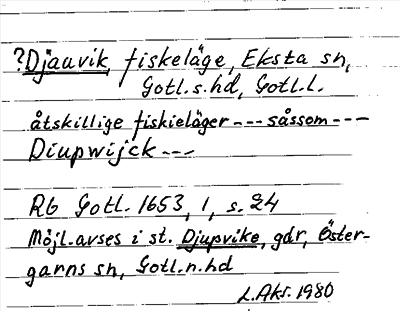 ?Djauvik, fiskeläge, Eksta sn,
Gotl.s.hd, Gotl.l.
åtskillige fiskieläger --- såssom ---
Diupwijck ---
Rb Gotl. 1653, 1, s. 24
Möjl. avses i st. Djupvike, gdr, Öster-
garns sn, Gotl.n.hd
L.Akr. 1980